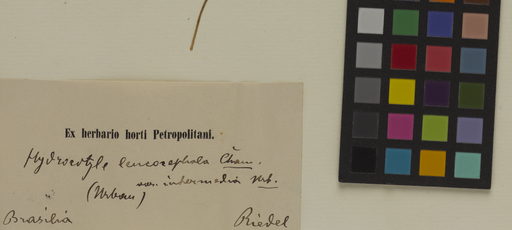 Ex herbario horti Petropolitani.
Hydrocotyle leucocephala Cham.
var. intermedia Urb.
(Urban)
Brasilia Riedel